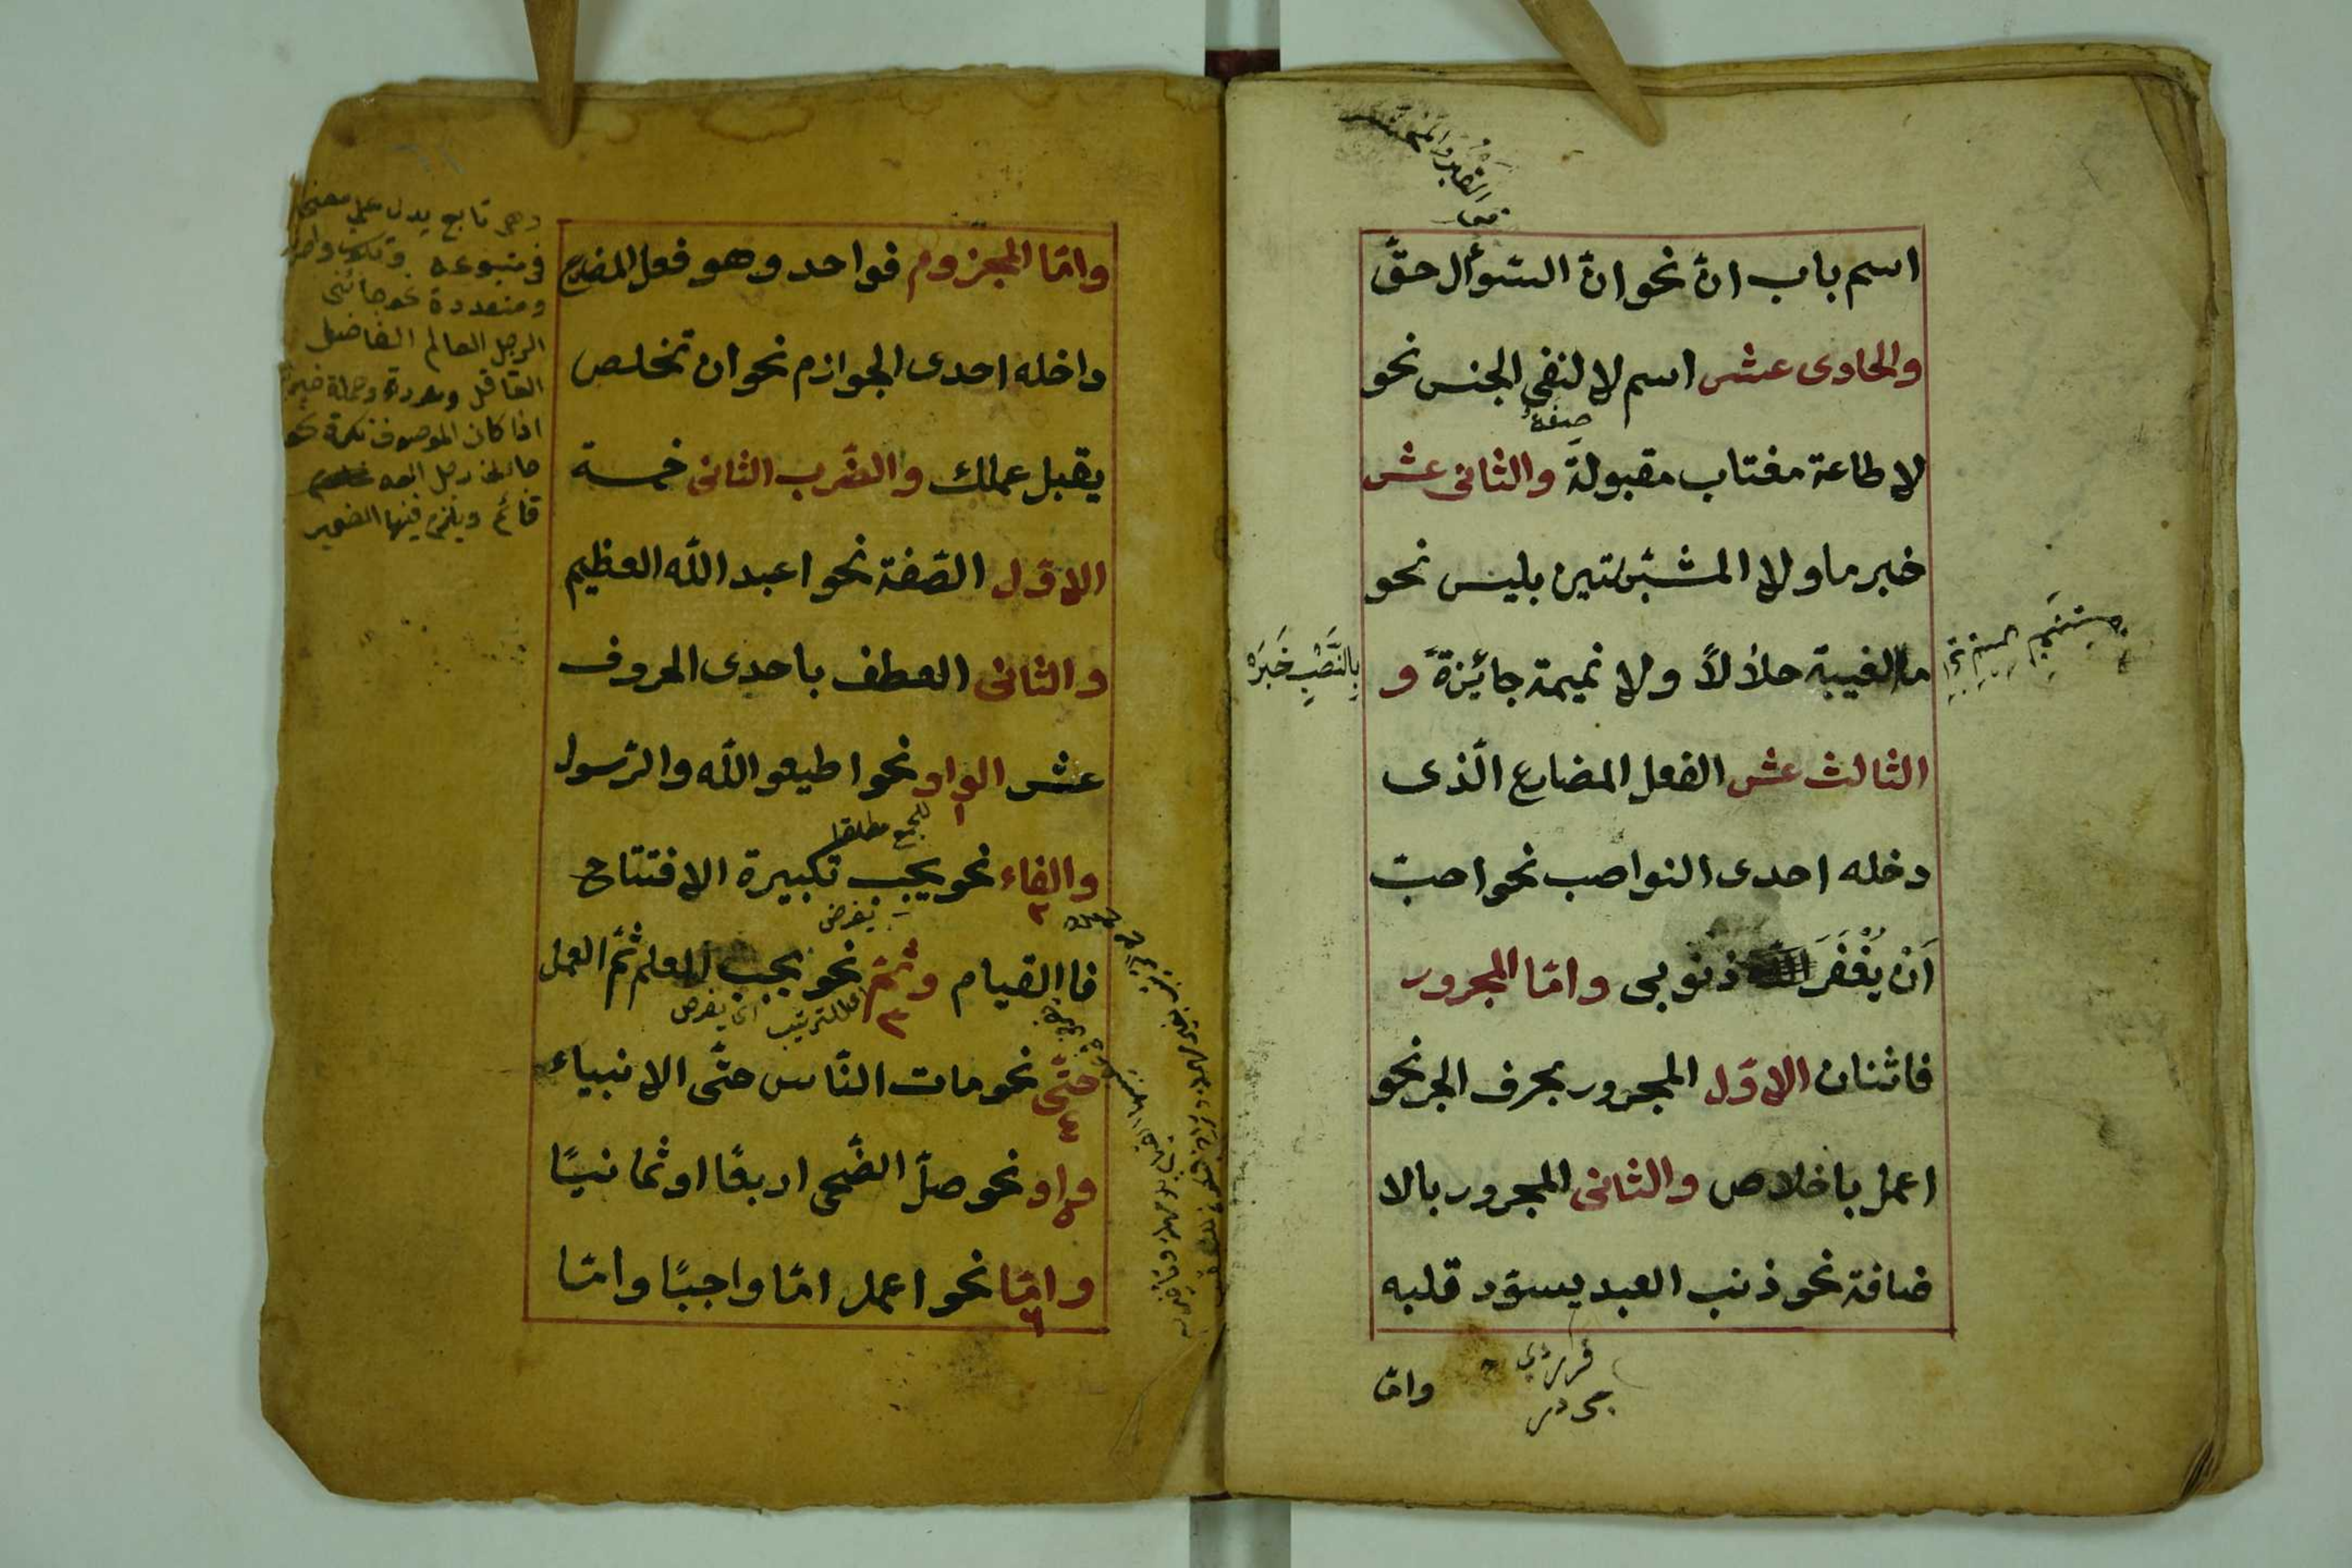 اسم باب انّ نحو انّ السّوأل حقّ
والحادى عشر اسم لا لنفى الجنس نحو
صفة
لا طاعة مغتاب مقبولة والثانى عشر
خبر ما ولا المشبّهتين بليس نحو
ما الغيبة حلالاً ولا نميمة جائزةً و
بِالنَّصْبِ خَبَرَه
الثالث عشر الفعل المضارع الّذى
دخله احدى النواصب نحو احبّ
اَنْ يَغْفَرَ اللّه ذنوبى وامّا المجرور
فاثنان الاوّل المجرور بحرف الجر نحو
اعمل باخلاص والثانى المجرور بالا
ضافة نحو ذنب العبد يسوّد قلبه
وامّا
وامّا المجزوم فواحد وهو فعل المضارع
داخله احدى الجوازم نحو ان تخلص
يقبل عملك والضّرب الثانى خمسة
الاوّل الصّفة نحو اعبد اللّه العظيم
والثانى العطف باحدى الحروف
عشر الواو نحو اطيعو اللّه والرّسول
١ للجمع مطلقا
والفاء نحو يجب تكبيرة الافتتاح
٢ يفرض
فا القيام وثمّ نحو يجب العلم ثمّ العمل
٣ للترتيب اى يفرض
حتّى نحو مات النّاس حتّى الانبياء
٤
واو نحو صلّ الضّحى اربعًا او ثمانيًا
٥
وامّا نحو اعمل امّا واجبًا وامّا
٦
وهى تابع يدل على معنى
فى متبوعه
ومتعددة نحو جائنى
الرجل العالم الفاضل
العاقل ومفردة وجملة خبرية
اذا كان الموصوف نكرة نحو
قائم ويلزم فيها الضمير